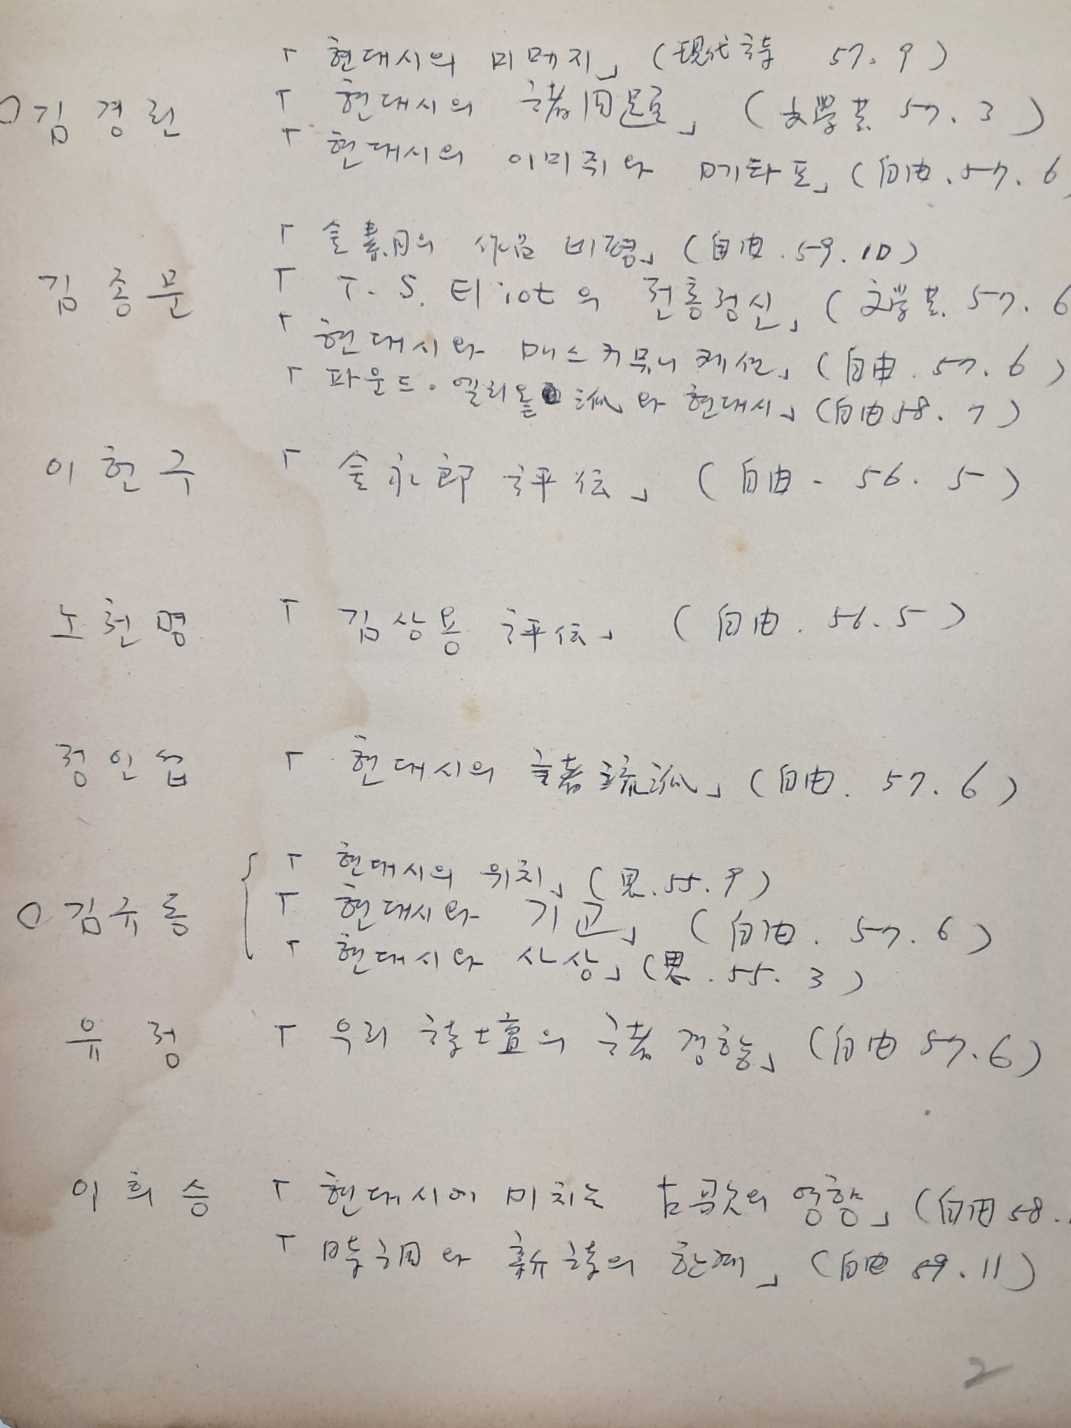 「현대시의 이메지」 (現代詩 57. 9)
○김경린 「현대시의 諸問題」 (文學芸. 57. 3)
「현대시의 이미쥐와 메타포」 (自由. 57. 6
「金素月의 作品 비평」 (自由. 59. 10)
김종문 「T. S. Eliot의 전통정신」 (文學芸. 57. 6
「현대시와 매스커뮤니케션」 (自由. 57. 6)
「파운드·엘리옽 派와 현대시」 (自由 58. 7)
이헌구 「金永郎 評伝」 (自由. 56. 5)
노천명 「김상용 評伝」 (自由. 56. 5)
정인섭 「현대시의 諸流派」 (自由. 57. 6)
○김규동 「현대시의 위치」 (思. 55. 9)
「현대시와 기교」 (自由. 57. 6)
「현대시와 사상」 (思. 55. 3)
유정 「우리 詩壇의 諸 경향」 (自由 57. 6)
이희승 「현대시에 미치는 古歌의 영향」 (自由 58.
「時調와 新詩의 한계」 (自由 59. 11)
2